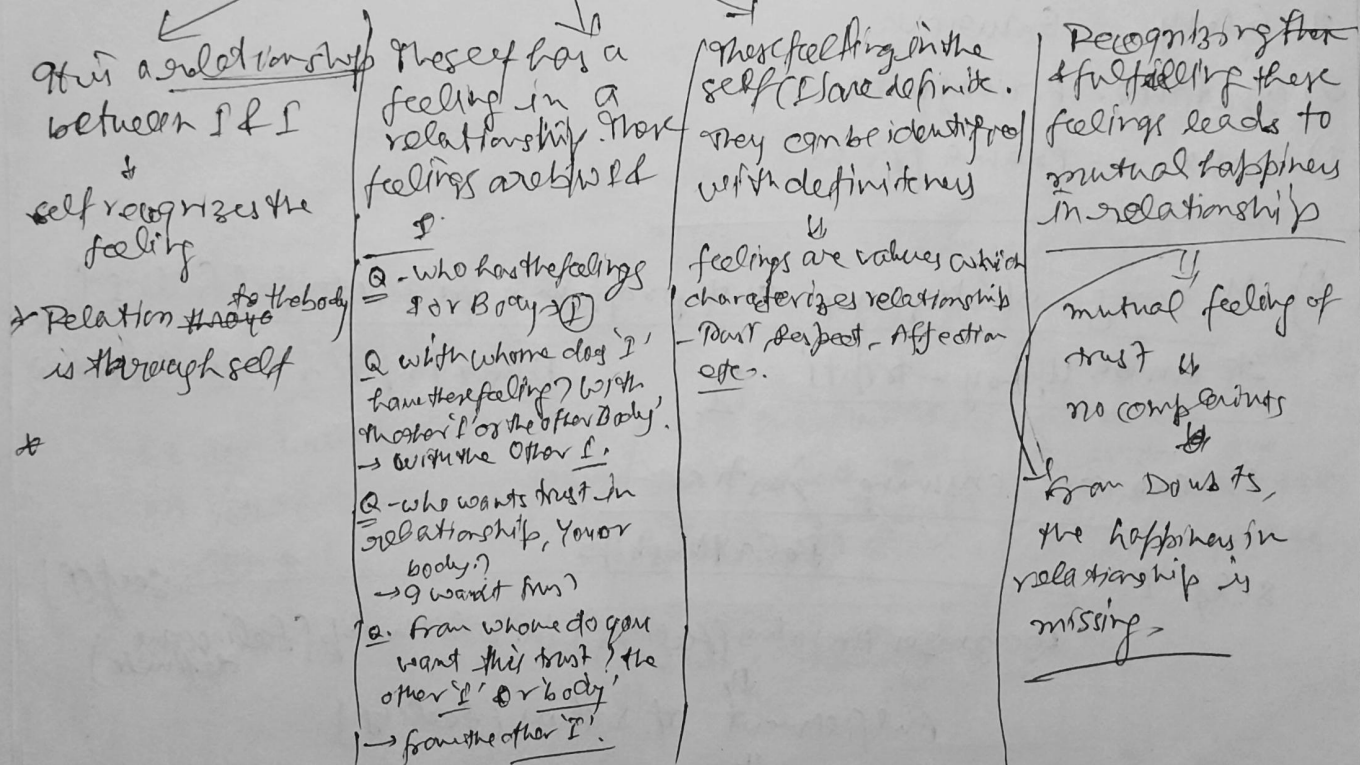 It is a relationship
between I & I
↓
self recognizes the
feeling
* Relation to the body
is through self
*
The self has a
feeling in a
relationship. These
feelings are b/w I &
I.
Q - who has the feelings
I or Body → I
Q with whome does 'I'
have these feeling? With
the other 'I' or the other Body'.
→ with the other I.
Q - who wants trust in
relationship, You or
body?
→ I want trust
Q. from whome do you
want this trust? the
other 'I' or 'body'
→ from the other 'I'.
These feelling in the
self (I) are definite.
They can be identified
with definiteness
⇓
feelings are values which
characterizes relationship
- Trust, Respect, Affection
etc.
Recognizing
& fulfilling these
feelings leads to
mutual happiness
in relationship
⇓
mutual feeling of
trust ⇓
no complaints
⇓
from Doubts,
the happiness in
relationship is
missing.